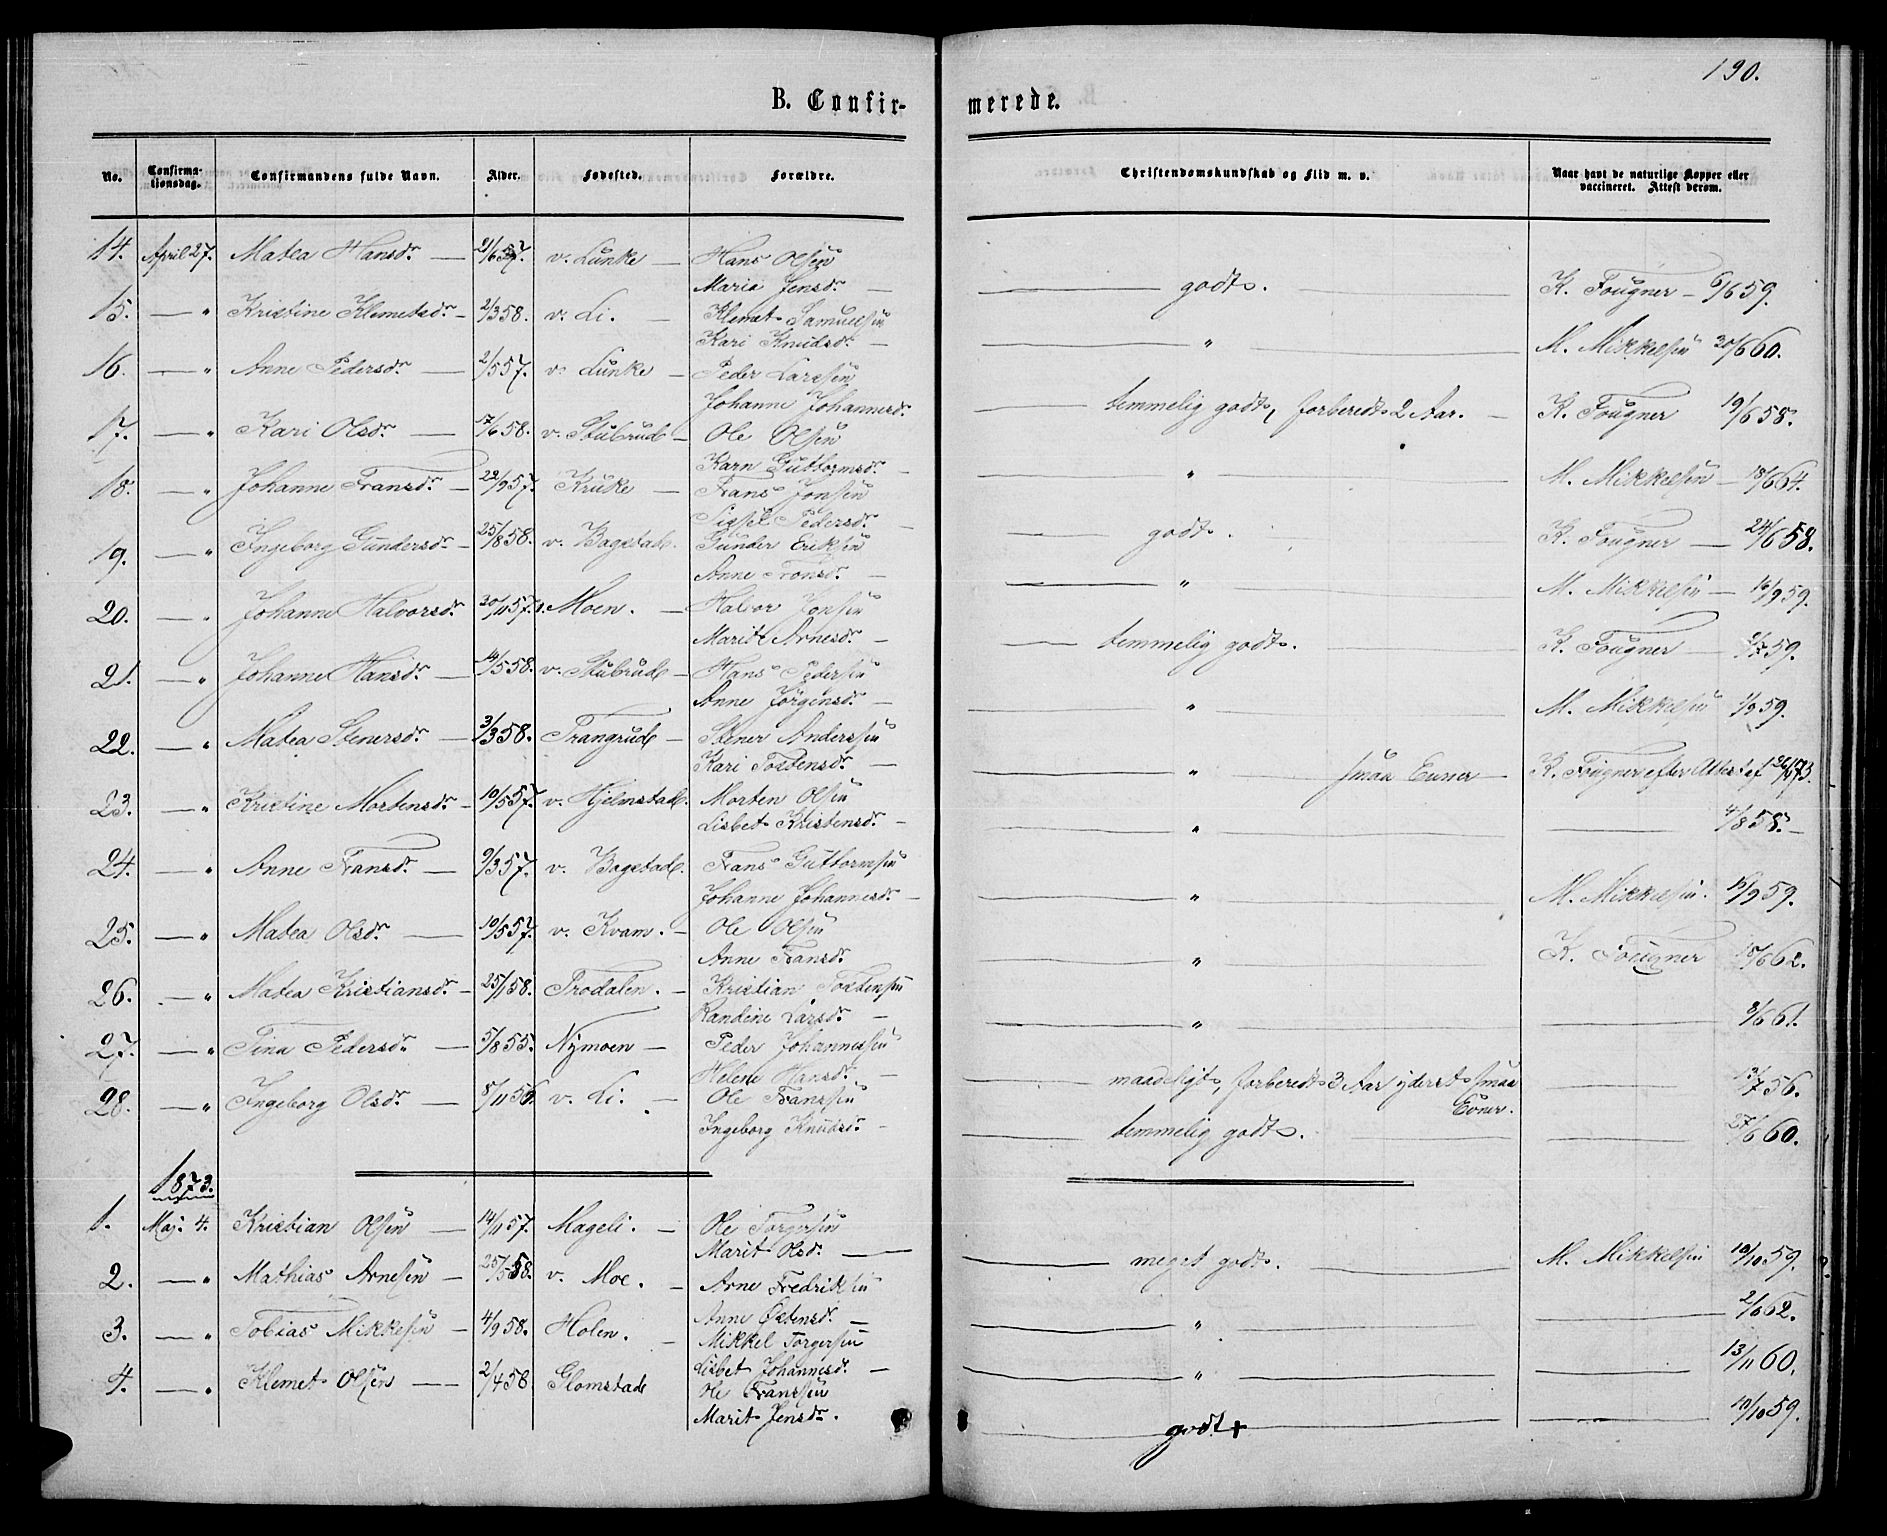 190.
B. Confirmerede.
No. Confirmationsdag. Confirmandens fulde Navn. Alder. Fødested. Forældre. Christendomskundskab og Flid m. v. Naar havt de naturlige Kopper eller vaccineret. Attest derom.
14. April 27. Matea Hansdr. — 21/6 57. v. Lünke — Hans Olsen
Maria Jensdr. — godt. — K. Fougner — 6/6 59.
15. — " Kristine Klemetsdr. — 2/3 58. v. Li. — Klemet Samuelsen
Kari Knudsdr. — " — M. Mikkelsen 20/6 60.
16. — " Anne Pedersdr. — 2/5 57. v. Lünke — Peder Larssen
Johanne Johannesdr. — temmelig godt, forberedt 2 Aar. — K. Fougner 19/6 58.
17. — " Kari Olsdr. — 7/6 58. v. Stubrud — Ole Olsen
Karn Guttormsdr. — " — M. Mikkelsen — 18/6 64.
18. — " Johanne Fransdr. — 22/9 57. Krüke — Frans Jonsen
Sissel Pedersdr. — godt. K. Fougner — 24/6 58.
19. — " Ingeborg Gundersdr. — 25/8 58. v. Bagstad. Gunder Eriksen
Anne Tronsdr. — " — M. Mikkelsen — 16/9 59.
20. — " Johanne Halvorsdr. 30/11 57. v. Moen. — Halvor Jonsen
Marit Arnesdr. — temmelig godt. K. Fougner — 59.
21. — " Johanne Hansdr. — 14/5 58. v. Stubrud — Hans Pedersen
Anne Jørgensdr. — " — M. Mikkelsen 1/9 59.
22. — " Matea Stenersdr. — 3/3 58. Trangrud — Stener Anderssen
Kari Tostensdr. — " smaa Evner — K. Fougner efter Attest af 73.
23. — " Kristine Mortensdr. — 10/5 57. v. Hjelmstad. Morten Olsen
Lisbet Kristensdr. — " — 4/8 58. —
24. — " Anne Fransdr. — 9/3 57. v. Bagstad. Frans Guttormsen
Johanne Johannesdr. — " — M. Mikkelsen. 16/9 59.
25. — " Matea Olsdr. — 10/5 57. v. Kvam. — Ole Olsen
Anne Fransdr. " — K. Fougner 15/6 62.
26. — " Matea Kristiansdr. — 25/1 58. Trodalen. — Kristian Tostensen
Randine Larsdr. — " — 8/6 61.
27. — " Tina Pedersdr. — 5/8 55. Nymoen — Peder Johannessen
Helene Hansdr. — maadeligt, forberedt 3 Aar yderst smaa Evner. — 13/7 56.
28. — " Ingeborg Olsdr. — 8/11 56. v. Li. — Ole Franssen
Ingeborg Knudsdr. — temmelig godt. — 27/6 60.
1873.
1. Maj. 4. Kristian Olsen — 14/11 57. Mageli. — Ole Torgersen
Marit Olsdr. — meget godt. — M. Mikkelsen 10/10 59.
2. — " Mathias Arnesen — 25/5 58. v. Moe. — Arne Fredriksen
Anne Østensdr. — " — 2/10 62.
3. — " Tobias Mikkelsen — 4/9 58. Holen. — Mikkel Torgersen
Lisbet Johannesdr. — " — 13/11 60.
4. — " Klemet Olsen — 2/4 58 Glomstad Ole Franssen
Marit Jensdr. godt — 10/10 59.